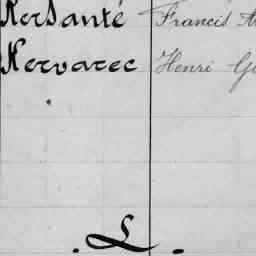 KerSanté Francis
Kervarec Henri
. L .